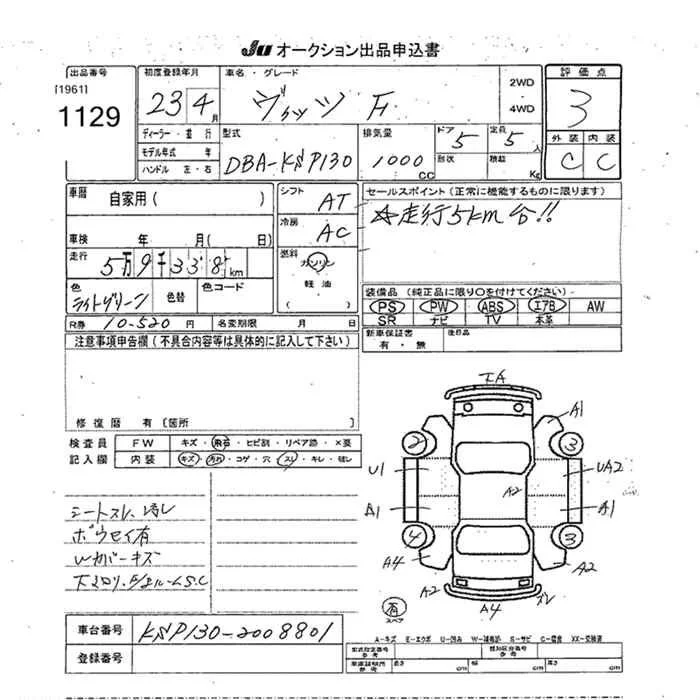 JU オークション出品申込書
出品番号
[1961]
1129
初度登録年月
23 4月
ディーラー・並行
モデル年式 年
ハンドル 左・右
車名・グレード
ヴィッツ F
2WD
・
4WD
評価点
3
外装 内装
C C
型式
DBA-KSP130
排気量
1000 CC
ドア
5
定員
5人
形状
積載
Kg
車歴
自家用 ( )
車検 年 月 ( 日)
走行
5万9千338km
色
ライトグリーン
色替
色コード
シフト
AT
冷房
AC
燃料
ガソリン
・
軽油
( )
R券 10-520 円
名変期限 月 日
セールスポイント (正常に機能するものに限ります)
☆走行5km台!!
装備品 (純正品に限り○を付けてください)
PS PW ABS エアB AW
SR ナビ TV 本革
新車保証書
有・無
後日品
注意事項申告欄 (不具合内容等は具体的に記入して下さい)
修復歴 有 [箇所 ]
検査員
記入欄
FW キズ・飛石・ヒビ割・リペア跡・×要
内装 キズ・汚れ・コゲ・穴・スレ・キレ・破レ
シートスレ、汚レ
ボウセイ有
Wカバーキズ
車台番号 KSP130-2008801
登録番号
エA
A1
2
3
U1
UA2
A2
A1
A1
4
3
A4
A2
A2
A4
ズレ
有
スペア
A-キズ E-エクボ U-凹み W-補修跡 S-サビ C-腐食 XX-交換済
型式指定番号
参考
類別区分番号
参考
車庫証明用
参考
長さ cm
幅 cm
高さ cm